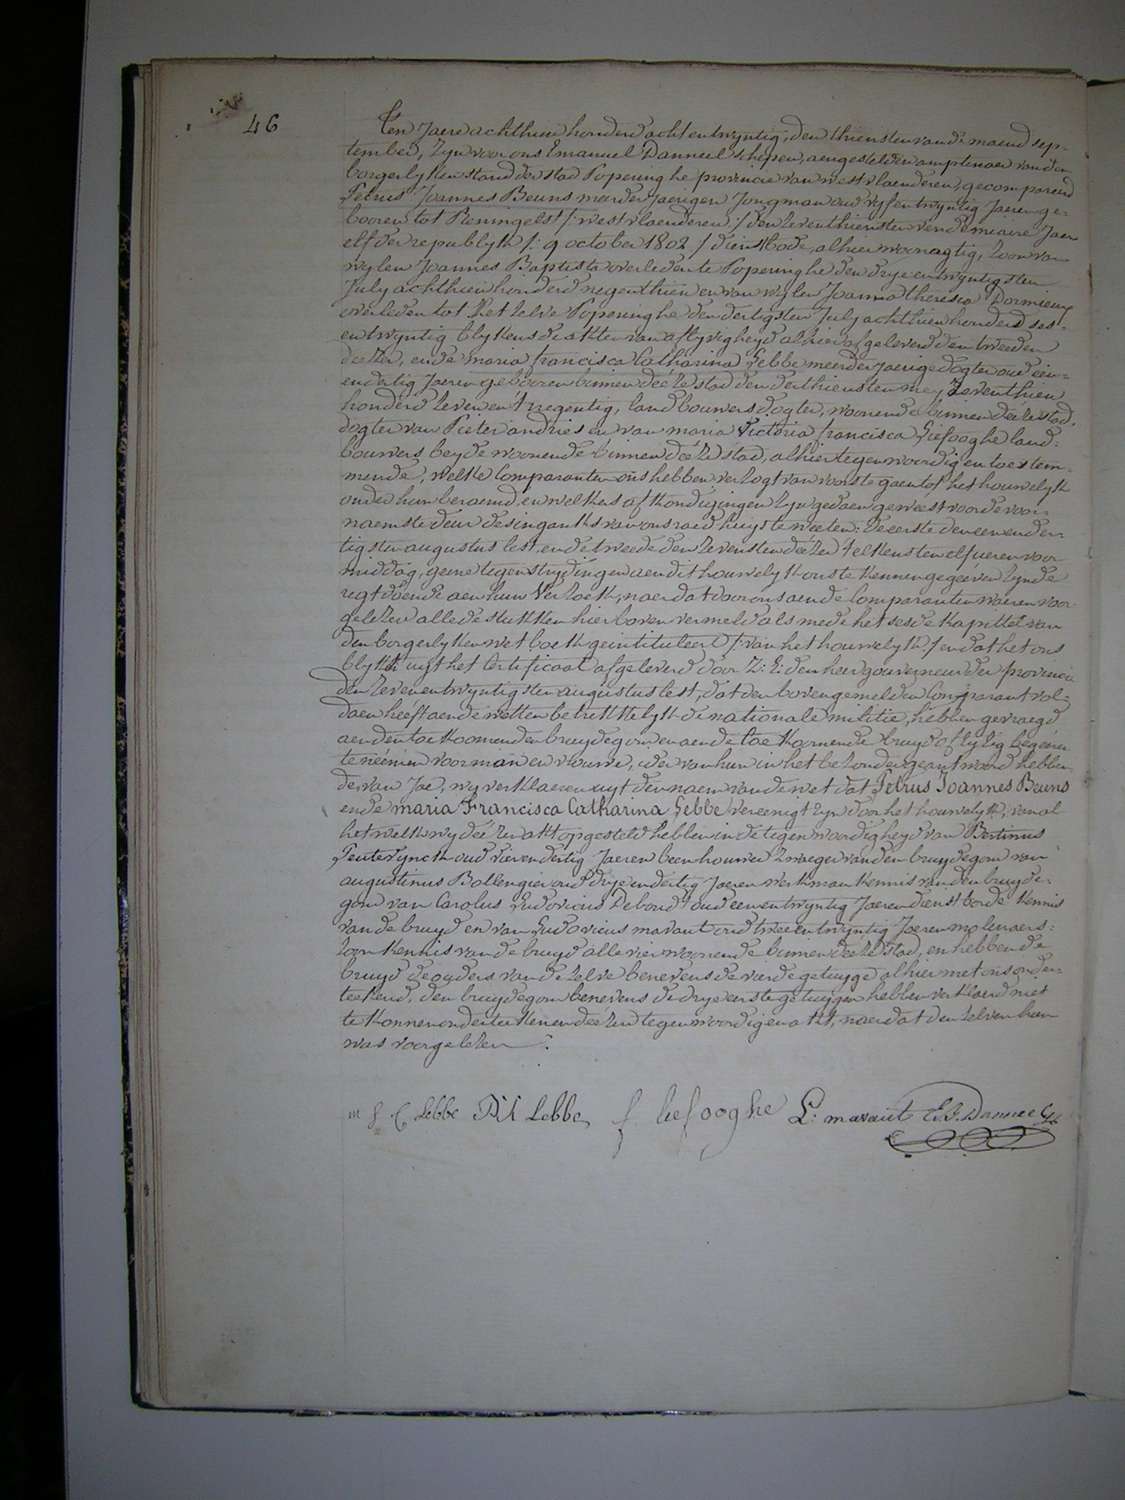 46
Ten Jaere achthien honderd acht en twyntig, den thiensten van de maend sep-
tember, zyn voor ons Emanuel Danneel schepen, aengestelden amptenaer van den
borgerlyken stand der stad Poperinghe provincie van westvlaenderen, gecompareerd
Petrus Joannes Beuns meerderjaerigen Jongman oud vyf en twyntig Jaeren ge-
booren tot Reningelst /: westvlaenderen :/ den zeventhiensten vendemiaire Jaer
elf der republyk /: 9 october 1802 :/ dienstbode, alhier woonagtig, zoon van
wylen Joannes Baptista overleden te Poperinghe den dryentwyntigsten
July achthien honderd negenthien en van wylen Joanna Theresia Dormieux
overleden tot het zelve Poperinghe den dertigsten July achthien honderd ses-
entwyntig blykens de akten van aflyvigheyd alhier afgeleverd den tweeden
deezer, ende maria francisca Catharina Lebbe meerderjaerige dogter oud een-
endertig Jaeren gebooren binnen deeze stad den derthiensten mey zeventhien
honderd zeven en 't negentig, landbouwers dogter, woonende binnen deeze stad,
dogter van Pieter andries en van maria Victoria francisca Liefooghe land-
bouwers beyde woonende binnen deeze stad, alhier tegenwoordig en toestem-
mende, welke Comparanten ons hebben verzogt van voorts te gaen tot het houwelyk
onder hun beraemd, en welkers afkondigingen zyn gedaen geweest voor de voor-
naemste deur des ingankx van ons raedhuys te weeten: de eerste den eenender-
tigsten augustus lest, en de tweede den zevensten deezer telkens ten elf ueren voor
middag, geene tegenstrydingen aen dit houwelyk ons te kennen gegeéven zynde
regtdoende aen hun verzoek, naer dat door ons aen de Comparanten waeren voor-
gelezen alle de stukken hier boven vermeld als mede het sesde kapittel van
den borgerlyken wetboek geintituleert /: van het houwelyk :/ en dat het ons
blykt uyt het Certificaat afgeleverd door Z: E: den heer gouverneur der provincie
den zevenentwyntigsten augustus lest, dat den bovengemelden Comparant vol-
daen heéft aen de wetten betrekkelyk de nationale militie, hebben gevraegd
aen den toekoomenden bruydegom en aen de toekoomende bruyd of zy zig begeéren
te neémen voor man en vrouwe, ider van hun in het bezonder geantwoord hebben-
de, van Jae, wy verklaeren uyt den naem van de wet dat Petrus Joannes Beuns
ende maria Francisca Catharina Lebbe vereenigt zyn door het houwelyk, van al
het welk wy deézen akt opgesteld hebben in de tegenwoordigheyd van Bertinus
Peuterynck oud vier en dertig Jaeren beenhouwer zwaeger van den bruydegom van
augustinus Ballengier oud dryendertig Jaeren werkman kennis van den bruyde-
gom van Carolus Ludovicus Deboudt oud eenentwyntig Jaeren dienstbode kennis
van de bruyd en van Ludovicus mavaut oud tweeentwyntig Jaeren molenaers-
zoon kennis van de bruyd alle vier woonende binnen deeze stad, en hebben de
bruyd de ouders van de zelve benevens de vierde getuyge alhier met ons onder-
teekend, den bruydegom benevens de drye eerste getuygen hebben verklaerd niet
te konnen onderteekenen deezen tegenwoordigen akt, naer dat den zelven hun
was voorgelezen
m f C Lebbe PA Lebbe f. Liefooghe L: mavaut E.J. Danneel